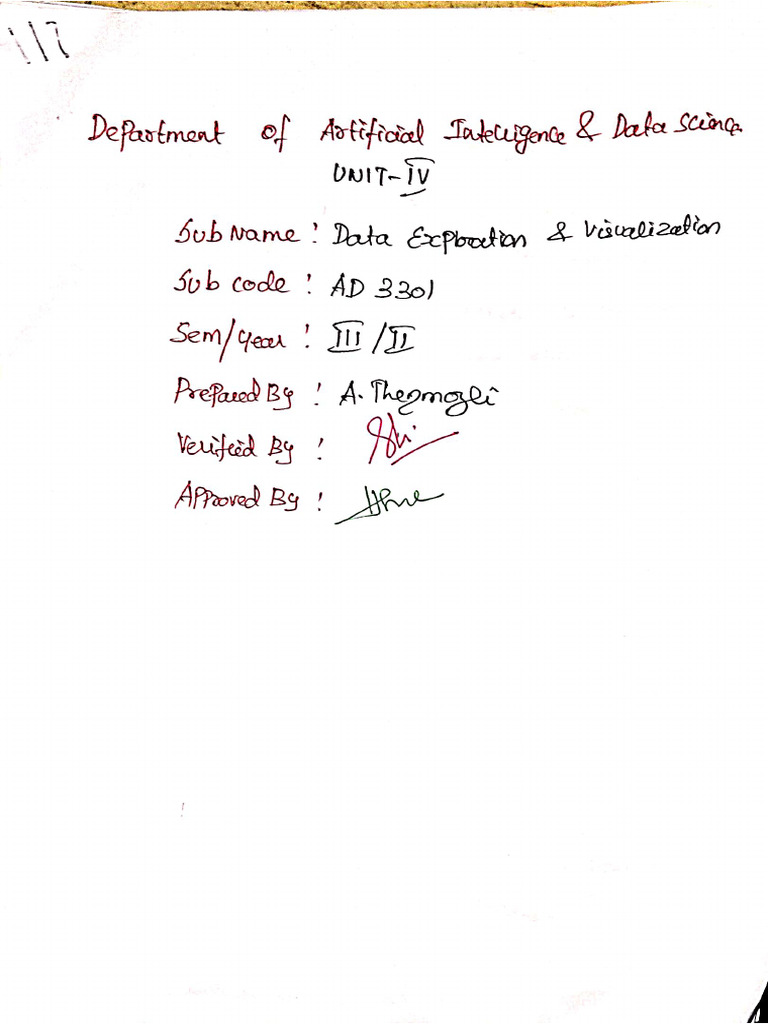 117
Department of Artificial Intelligence & Data Science
UNIT-IV
Sub Name : Data Exploration & Visualization
Sub code : AD 3301
Sem/Year : III / II
Prepared By : A. Thenmozhi
Verified By :
Approved By :